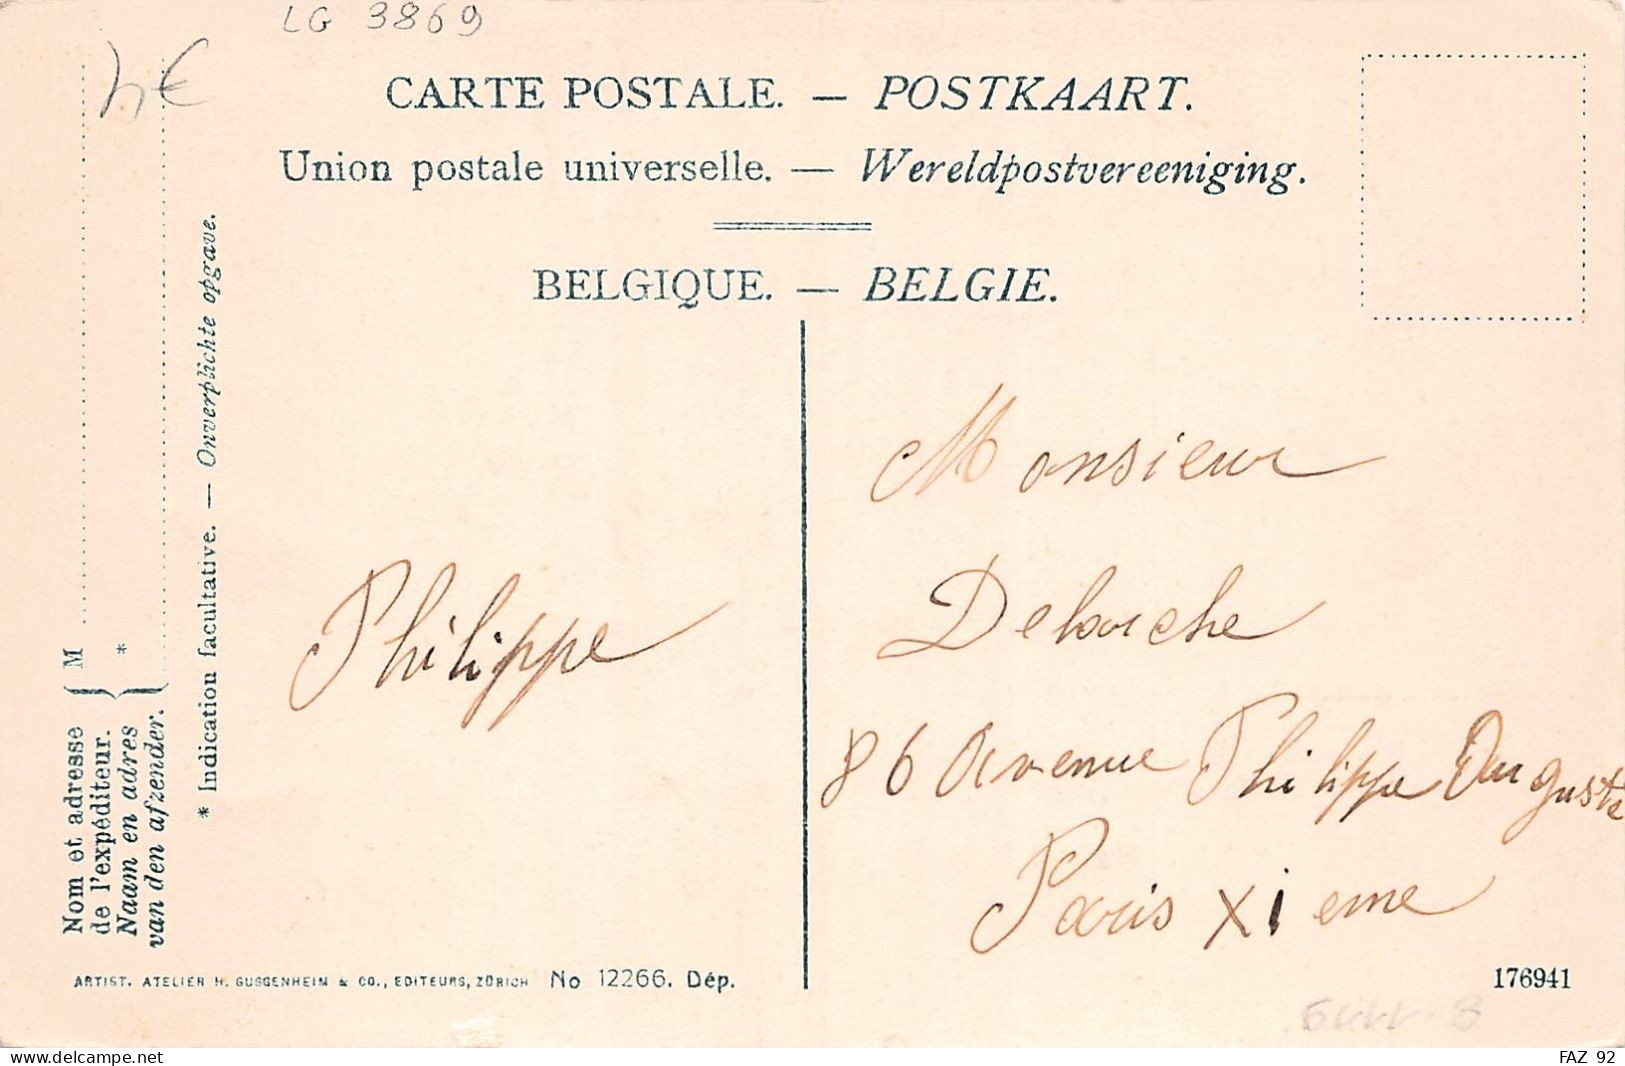 LG 3869
4€
CARTE POSTALE. — POSTKAART.
Union postale universelle. — Wereldpostvereeniging.
BELGIQUE. — BELGIE.
Nom et adresse
de l'expéditeur.
Naam en adres
van den afzender.
M
*
* Indication facultative. — Onverplichte opgave.
Philippe
Monsieur
Delouche
86 Avenue Philippe Auguste
Paris XIeme
ARTIST. ATELIER H. GUGGENHEIM & CO., EDITEURS, ZÜRICH No 12266. Dép.
176941
www.delcampe.net
FAZ 92